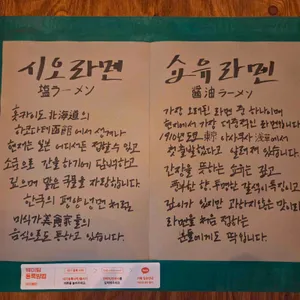 시오라멘
塩ラーメン
홋카이도 北海道의
하코다테 函館 에서 생겨나
현재는 일본 어디서든 접할수 있고
소금으로 간을 하기에 담백하고
깊으며 맑은 국물을 자랑합니다.
한국의 평양냉면 처럼
미식가 美食家들의
음식으로도 통하고 있습니다.
쇼유라멘
醤油ラーメン
가장 오래된 라멘 중 하나이며
현재에서 가장 대중적인 라멘입니다
1910년 도쿄 아사쿠사 浅草에서
첫 출발했다고 알려져 있습니다.
간장을 뜻하는 쇼유는 깊고
진한 향, 뚜렷한 감칠이 특징이고
깊이가 있지만 과하지 않은 맛이라
라멘을 처음 접하는
분들에게도 딱입니다.